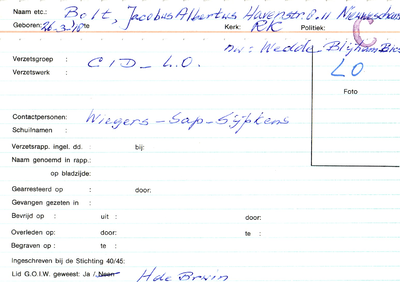 Naam etc.: Bolt, Jacobus Albertus Havenstr. 0.11 Nieuweschans
Geboren: 26-3-'18 te Kerk: RK Politiek:
Dw: Wedde Blijham
Verzetsgroep : CID - L.O.
Verzetswerk :
LO
Foto
Contactpersonen: Wiegers - Sap - Sijpkens
Schuilnamen :
Verzetsrapp. ingel. dd. : bij:
Naam genoemd in rapp.:
op bladzijde:
Gearresteerd op : door:
Gevangen gezeten in :
Bevrijd op : uit : door:
Overleden op: door: te :
Begraven op : te :
ingeschreven bij de Stichting 40/45:
Lid G.O.I.W. geweest: Ja / Neen H de Bruin